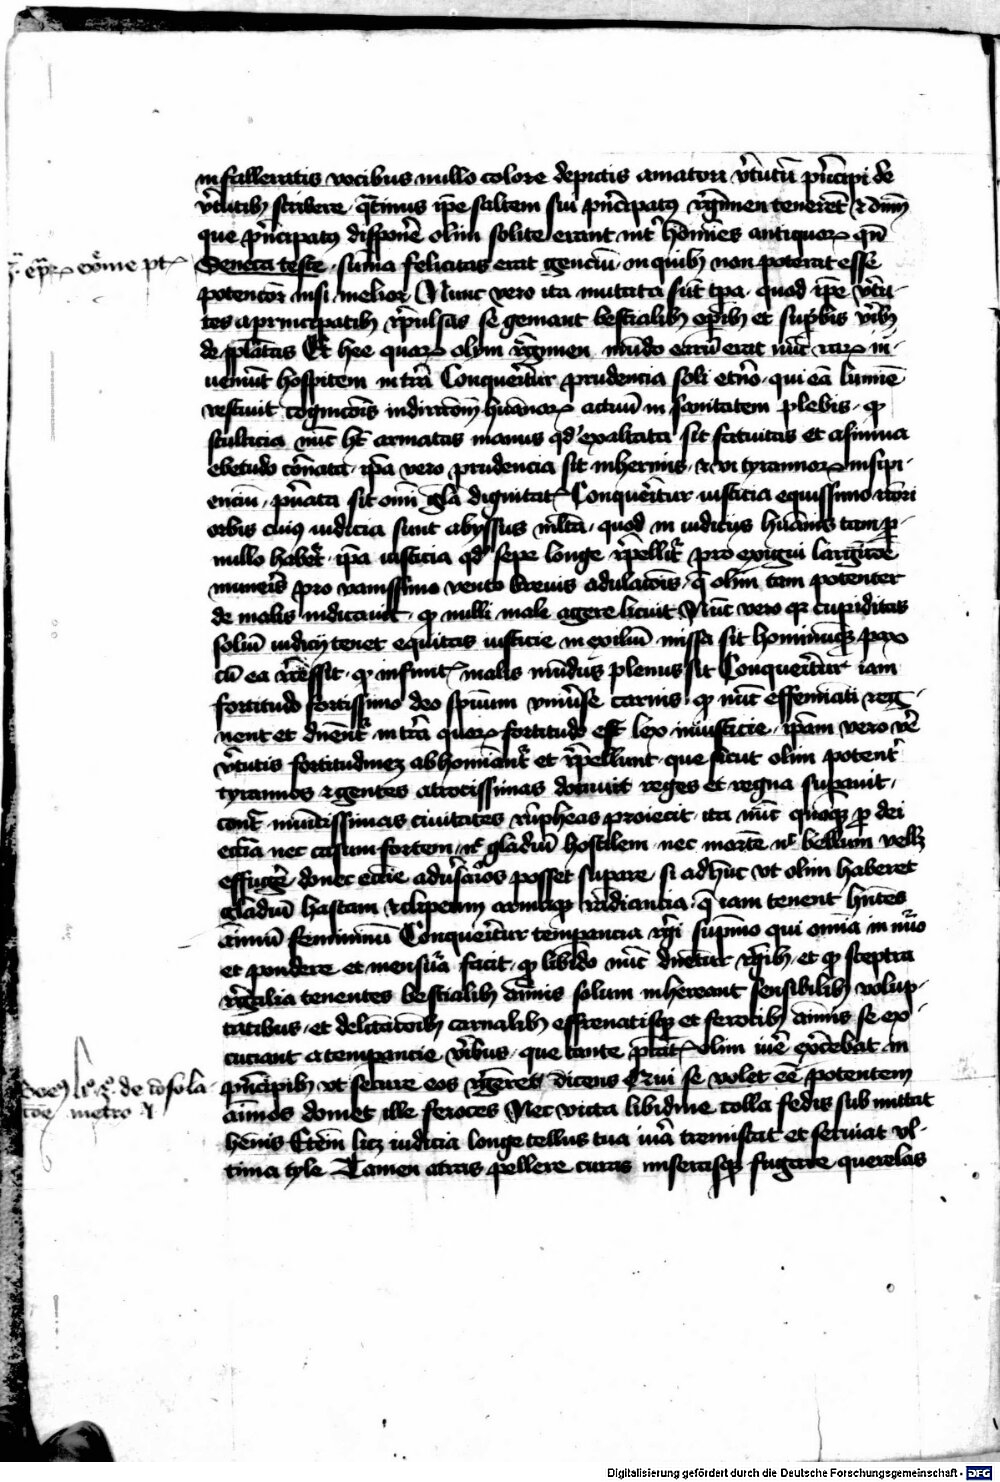 in falleratis vocibus nullo colore depictis amatori v̄tutū p̄ncipi de
v̄tutib scribere q̄tinus ip̄e saltem sui p̄ncipatꝰ regimen teneret
que p̄ncipatꝰ disponē olim solite erant int̄ homīes antiquoꝝ qn̄
Seneca teste sum̄a felicitas erat genciū in quib non poterat esse
potencior nisi melior Nunc vero ita mutata sūt tp̄a quod ip̄e v̄tu
tes a principatib rep̄ulsas se gemant bestialib op̄ib et sup̄bis v̄ib
Et hee quaꝝ olym regimen mūdo erat nūc raꝝ in
veniūt hospitem in tr̄a Conquerūtur prudencia soli et̄no qui eā lumīe
vestivit cognic̄ois in direct̄iom̄ huānoꝝ actuū in sanitatem plebis qꝫ
stulticia nūc hꝫ armatas manus qd exaltata sit fatuitas et asinina
ebetudo ip̄a vero prudencia sit inhermis et vi tyrannoꝝ insipi
enciū p̄uata sit om̄i gl̄a dignitat Conquerūtur iusticia equissimo
orbis cuiꝰ iudicia sunt abyssus ml̄ta quod in iudicijs huānis tam p̄
nullo habet̄ ip̄a iusticia qd sepe longe repellit̄ pro exigui
muneris pro vanissimo vento brevis adulac̄ois q̄ olim tam potenter
de malis indicavit qꝫ nulli male agere licuit Nūc vero qꝛ cupiditas
soliū iudicij tenet equitas iusticie in exiliū missa sit hominūqꝫ pax
cū ea recessit qꝫ infinit malis mūdus plenus sit Conquerūtur iam
fortitudo fortissimo deo sp̄iuum univ̄se carnis qꝫ nūc effem̄iati reg
nent et dn̄ent̄ in tr̄a quoꝝ fortitudo est lex iniusticie ip̄am vero v̄e
v̄tutis fortitudinez abhomināt̄ et repellunt que sicut olim potent̄
tyrannos et gentes atrocissimas docuit reges et regna sup̄auit
cont̄ munitissimas civitates proiecit ita nūc quoqꝫ p̄ dei
ecc̄ia nec casum fortem nec gladiū hostilem nec mortē nec bellum vellꝫ
effugē donec ecc̄ie adūsarios posset sup̄are si adhūc vt olim haberet
gladiū hastam et clipeum armaqꝫ radiantia q̄ iam tenent hn̄tes
animū feminimū Conquerūtur temp̄ancia regi sup̄mo qui om̄ia in nūo
et pondere et mensūa facit qꝫ libido nūc dn̄etur regib et qꝫ sceptra
regalia tenentes bestialib animis solum inhereant sensibilib volup
tatibus et delectac̄oib carnalib effrenatisqꝫ et ferocib animis se ex
cutiant a temp̄ancie v̄ibus que tante olim iuē in
p̄ncipib vt secure eos regeret dicens Qui se volet eē potentem
animos domet ille feroces Nec victa libidine colla fedis submittat
hēnis Etem̄ licꝫ iudicia longe tellus tua iuā tremiscat et serviat vl
tima tyle Tamen atras pellere curas miserasqꝫ fugare querelas
de c̄osola
c̄oe metro